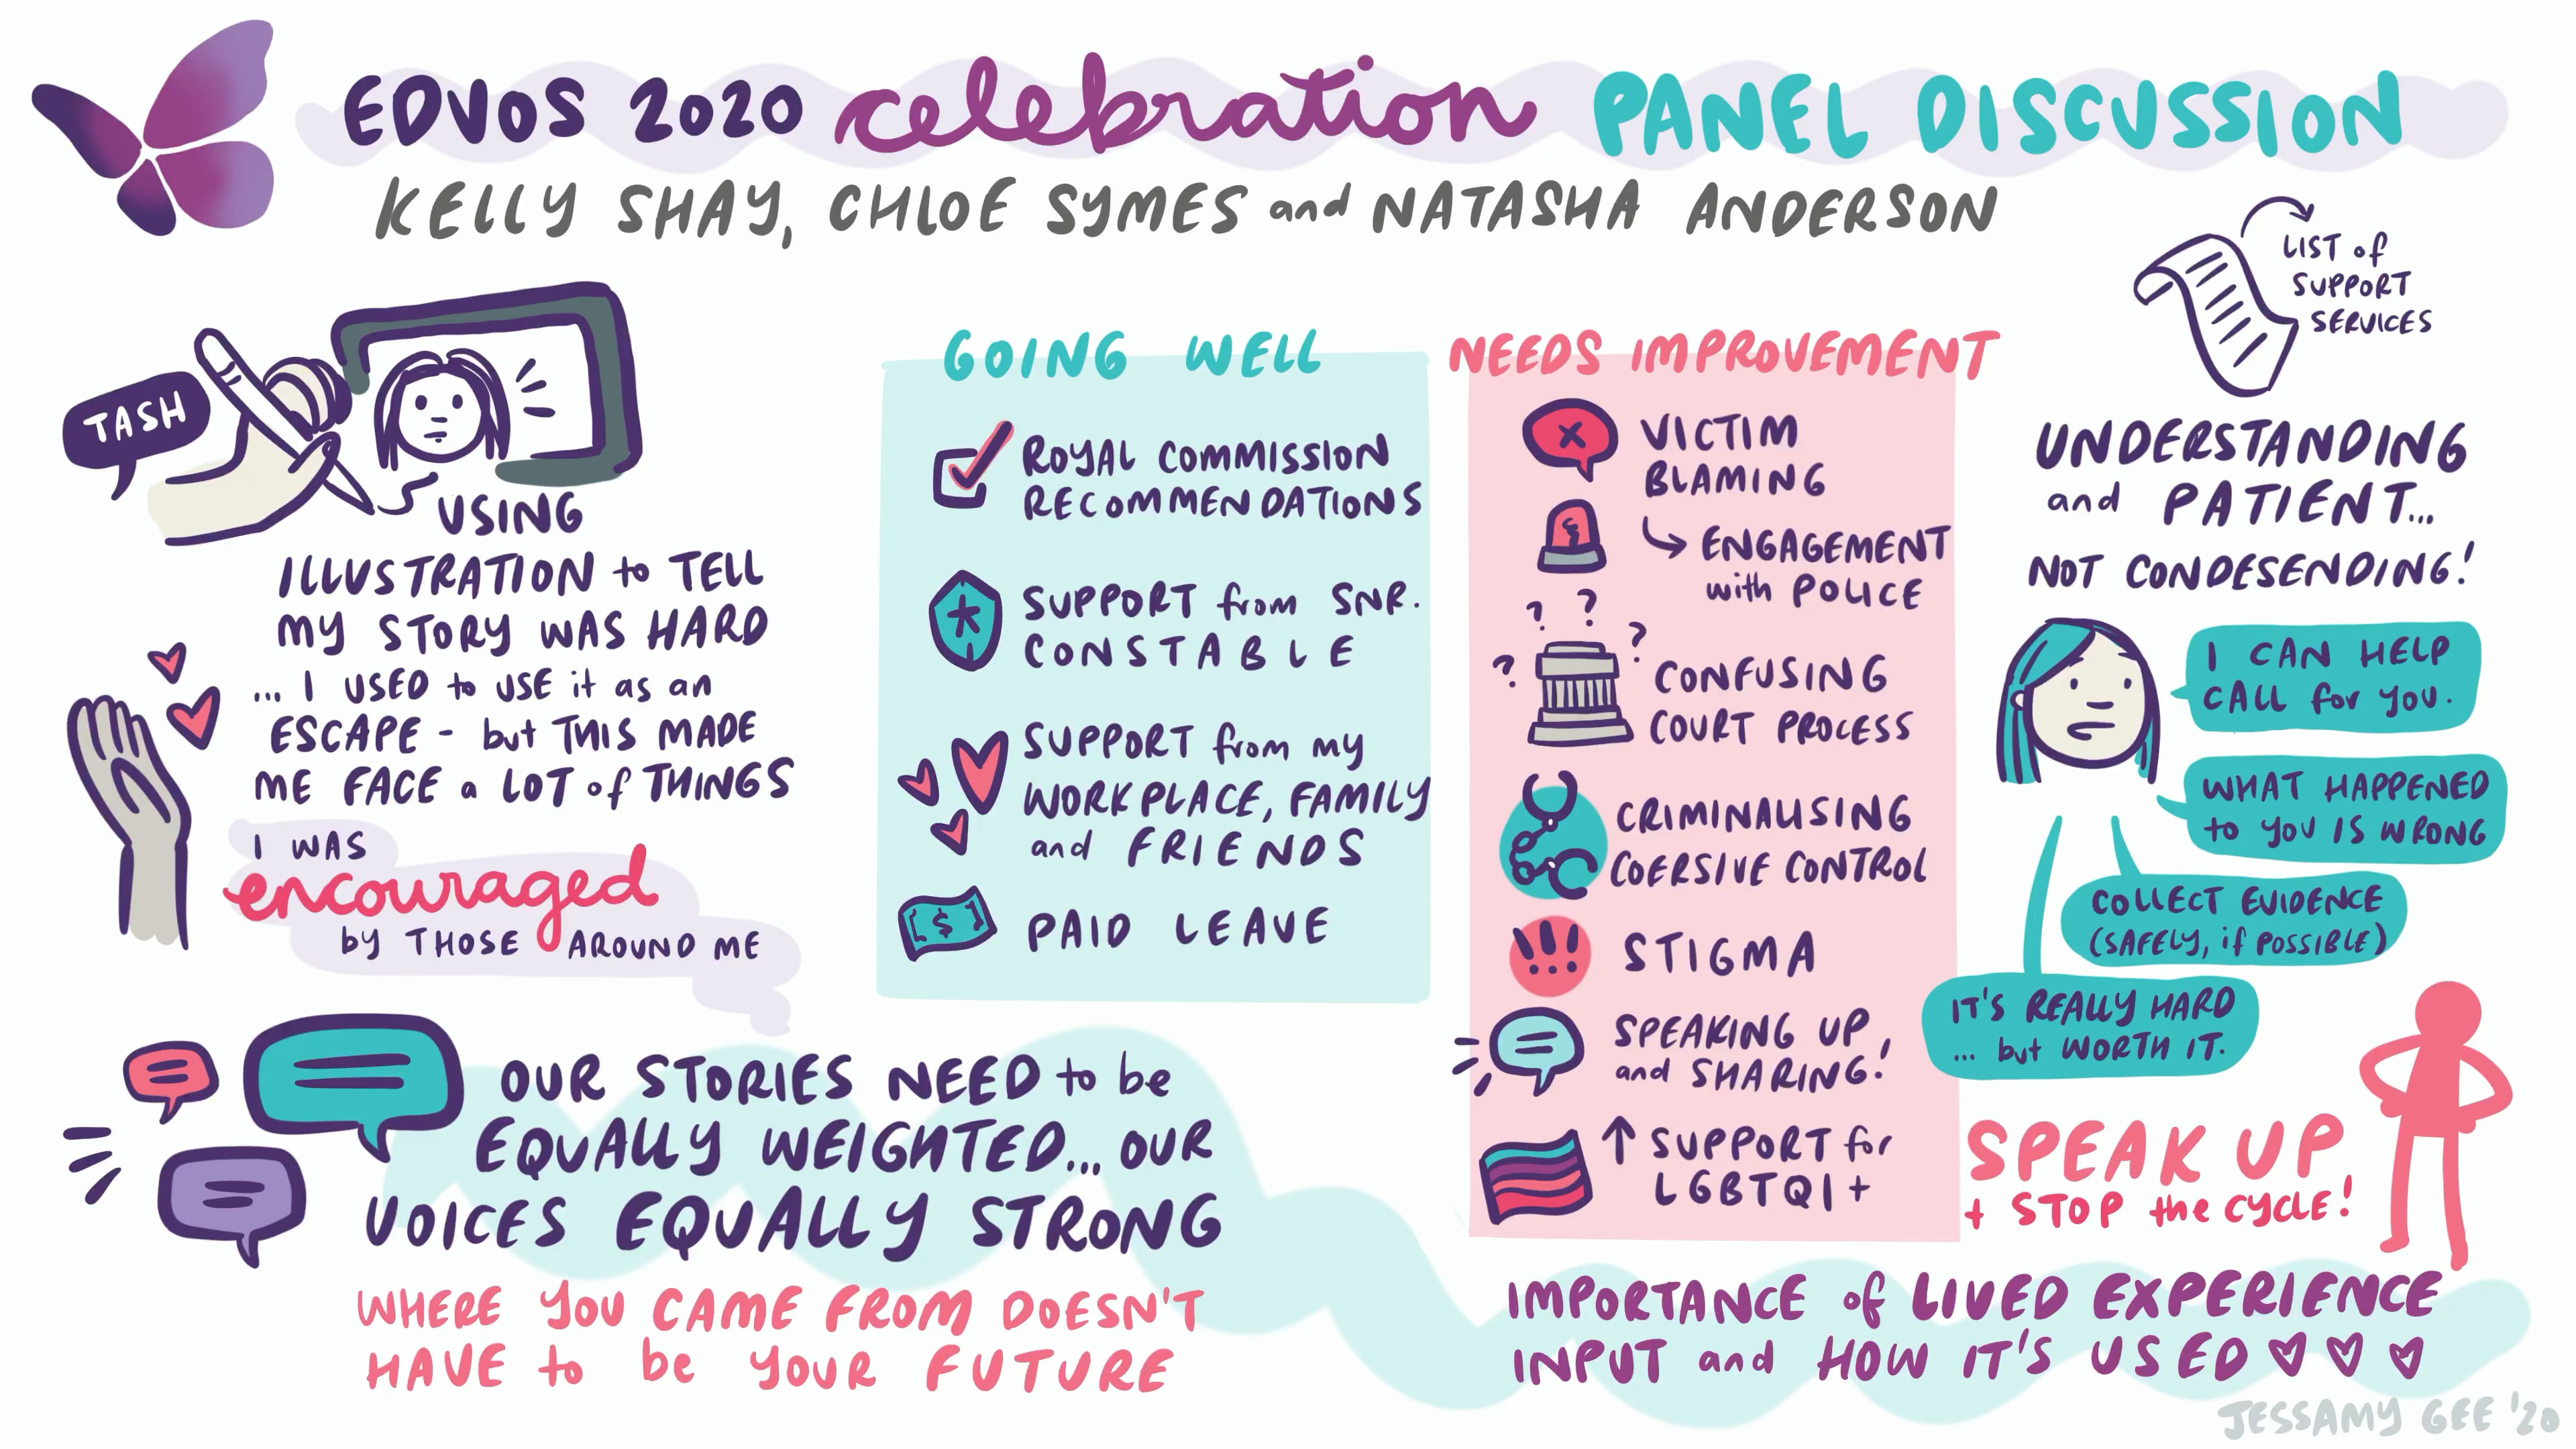 EDVOS 2020 celebration PANEL DISCUSSION
KELLY SHAY, CHLOE SYMES and NATASHA ANDERSON
TASH
USING
ILLUSTRATION to TELL
MY STORY WAS HARD
... I USED to USE it as an
ESCAPE - but THIS MADE
ME FACE a LOT of THINGS
I WAS
encouraged
by THOSE AROUND ME
OUR STORIES NEED to be
EQUALLY WEIGHTED... OUR
VOICES EQUALLY STRONG
WHERE YOU CAME FROM DOESN'T
HAVE to be YOUR FUTURE
GOING WELL
ROYAL COMMISSION
RECOMMENDATIONS
SUPPORT from SNR.
CONSTABLE
SUPPORT from MY
WORKPLACE, FAMILY
and FRIENDS
$
PAID LEAVE
NEEDS IMPROVEMENT
VICTIM
BLAMING
ENGAGEMENT
with POLICE
? ?
? ?
CONFUSING
COURT PROCESS
CRIMINALISING
COERSIVE CONTROL
!!!
STIGMA
SPEAKING UP
and SHARING!
↑ SUPPORT for
LGBTQI+
LIST of
SUPPORT
SERVICES
UNDERSTANDING
and PATIENT...
NOT CONDESENDING!
I CAN HELP
CALL for YOU.
WHAT HAPPENED
to YOU IS WRONG
COLLECT EVIDENCE
(SAFELY, if POSSIBLE)
IT'S REALLY HARD
... but WORTH IT.
SPEAK UP
+ STOP the CYCLE!
IMPORTANCE of LIVED EXPERIENCE
INPUT and HOW IT'S USED ♡ ♡ ♡
JESSAMY GEE '20